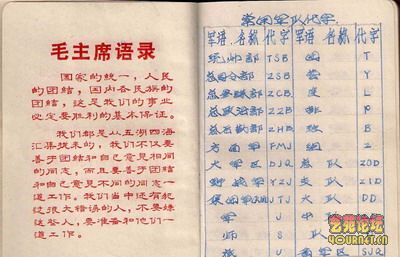 毛主席语录
国家的统一，人民
的团结，国内各民族的
团结，这是我们的事业
必定要胜利的基本保证。
我们都是从五湖四海
汇集拢来的，我们不仅要
善于团结和自己意见相同
的同志，而且要善于团结
和自己意见不同的同志一
道工作。我们当中还有犯
过很大错误的人，不要嫌
这些人，要准备和他们一
道工作。
常用军队代字
军语 名称 代字 军语 名称 代字
统帅部 TSB 团 T
总参谋部 ZCB 连 L
总政治部 ZZB 排 P
总后勤部 ZHB 班 B
方面军 FMJ 组 Z
大军区 DJQ 总队 ZOD
野战军 YZJ 支队 ZID
集团军 JTJ 大队 DD
军 J 中队
师 S 队
旅
SJQ
艺苑论坛
4YOURNET.CN